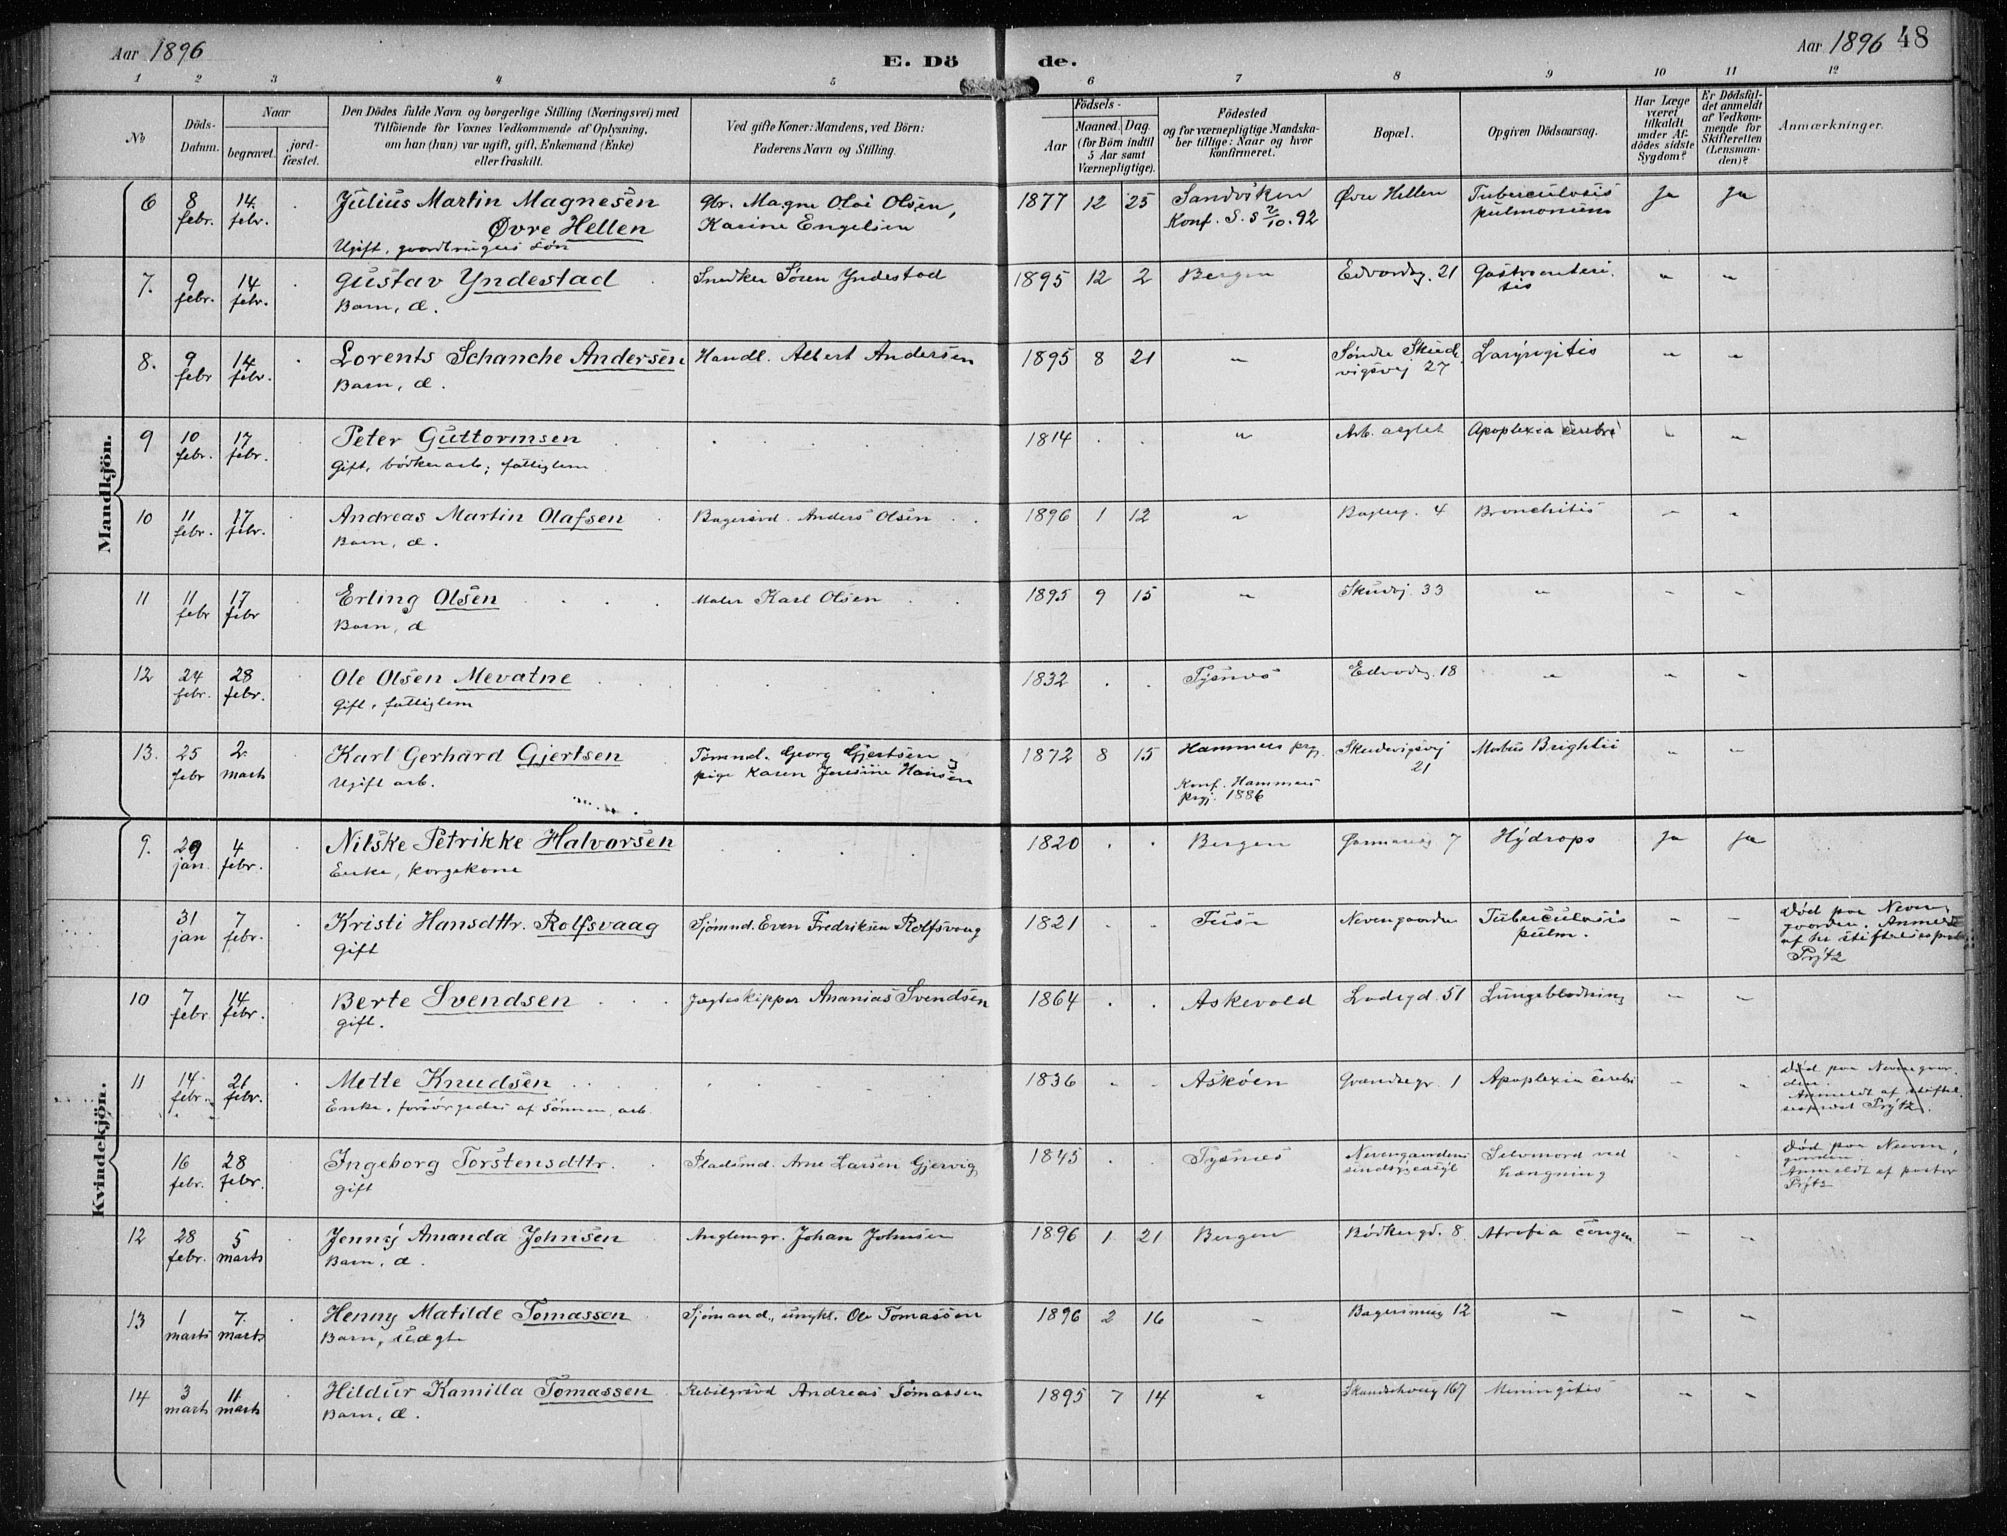 Aar 1896
E. Dö de.
Aar 1896 48
1 2 3 4 5 6 7 8 9 10 11 12
No
Döds-Datum.
Naar
begravet.
jord-fæstet.
Den Dödes fulde Navn og borgerlige Stilling (Næringsvei) med
Tilföiende for Voxnes Vedkommende af Oplysning,
om han (hun) var ugift, gift, Enkemand (Enke)
eller fraskilt.
Ved gifte Koner: Mandens, ved Börn:
Faderens Navn og Stilling.
Födsels-
Aar
Maaned. Dag.
(for Börn indtil
5 Aar samt
Værnepligtige).
Födested
og for værnepligtige Mandska-
ber tillige: Naar og hvor
konfirmeret.
Bopæl.
Opgiven Dödsaarsag.
Har Læge
været
tilkaldt
under Af-
dödes sidste
Sygdom?
Er Dödsfal-
det anmeldt
af Vedkom-
mende for
Skifteretten
(Lensman-
den)?
Anmærkninger.
Mandkjön.
6 8 febr. 14 febr. Julius Martin Magnesen Øvre Hellen
Ugift, gaardbrugers sön
gbr. Magne Oloi Olsen,
Karine Engelsen
1877 12 25 Sandviken
Konf. S. s 2/10. 92
Øvre Hellen Tuberculosis
pulmonum ja ja
7. 9 febr. 14 febr. Gustav Yndestad
Barn, æ.
Snedker Søren Yndestad 1895 12 2 Bergen Edvardsg. 21 Gastroenteri
tis " "
8. 9 febr 14 febr. Lorents Schanche Andersen
Barn, æ.
Handl. Albert Andersen 1895 8 21 " Søndre Skud
vigsvej 27 Laryngitis " "
9 10 febr. 17 febr. Peter Guttormsen
Gift, bödkerarb; fattiglem
1814 " Arb. Apoplexia cerebri " "
10 11 febr. 17 febr. Andreas Martin Olafsen
Barn, æ.
Bagersvd. Anders Olsen 1896 1 12 " 4 Bronchitis " "
11 11 febr 17 febr Erling Olsen
Barn, æ
Maler Karl Olsen 1895 9 15 " Skudvj. 33 " " "
12 24 febr. 28 febr. Ole Olsen Mevatne
Gift, fattiglem
1832 Tysnes Edvardsg. 18 " " "
13. 25 febr 2 marts Karl Gerhard Gjertsen
Ugift arb.
Tömmd. Georg Gjertsen og
pige Karen Jensine Hansen
1872 8 15 Hammers prgj.
Konf. Hammers
prgj. 1886
Skudevigsvej
21 Morbus Brightii " "
Kvindekjön.
9. 29 jan. 4 febr. Nilske Petrikke Halvorsen
Enke, korgekone
1820 Bergen 7 Hydrops ja ja
31 jan 7 febr. Kristi Hansdttr. Rolfsvaag
Gift
Sjømnd. Even Fredriksen Rolfsvaag 1821 Fuse Nevengaarden Tuberculosis
pulm. " "
Død paa Neven
gaarden. Anmeldt
af hr stiftelsesprest
Prytz
10 7 febr. 14 febr. Berte Svendsen
gift.
Jægteskipper Ananias Svendsen 1864 Askevold Ladegd. 51 Lungeblødning " "
11 14 febr. 21 febr. Mette Knudsen
Enke, forsörgedes af sönnen, arb.
1836 Askøen Grændsegr. 1 Apoplexia cerebri " "
Død paa Nevengaar
den.
Anmeldt af stiftel
sesprest Prytz.
16 febr. 28 febr. Ingeborg Torstensdttr.
gift
Pladsmd. Arne Larsen Gjervig 1845 Tysnes Nevengaardens
sindssygeasyl Selvmord ved
hængning " "
Død paa Neven,
gaarden.
Anmeldt af pastor
Prytz
12 28 febr. 5 marts Jenny Amanda Johnsen
Barn, æ.
Johan Johnsen 1896 1 21 Bergen Bödkergd. 8 Atrofia congen. " "
13 1 marts 7. marts Henny Matilde Tomassen
Barn, uægte
Sjømand, ungkl. Ole Tomassen 1896 2 16 " 12 " " "
14 3 marts 11 marts Hildur Kamilla Tomassen
Barn, æ.
Andreas Tomassen 1895 7 14 " 167 Meningitis " "